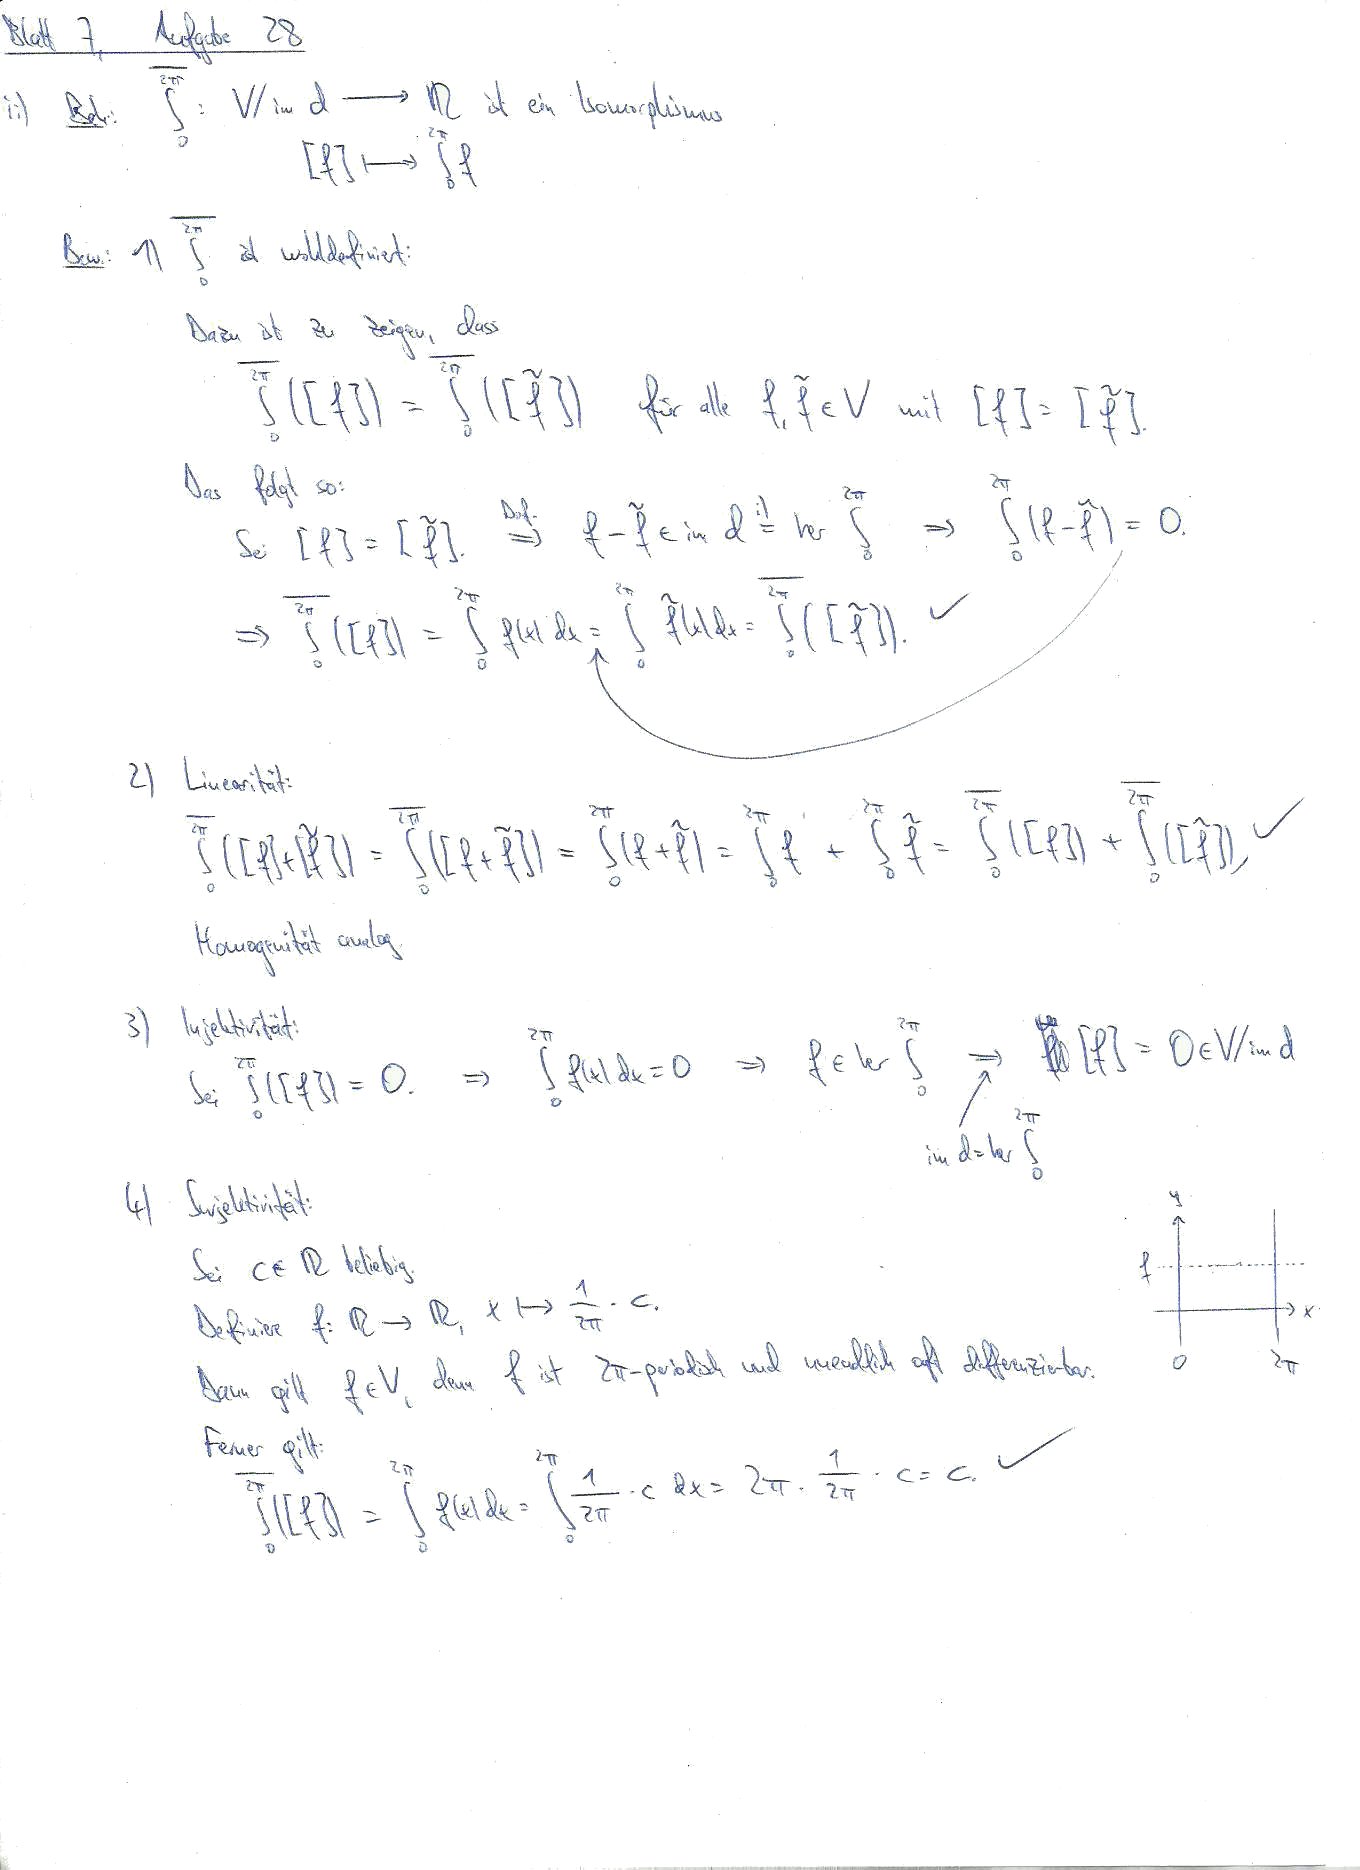 Blatt 7, Aufgabe 28
ii) Beh.: \overline{∫_0^{2π}}: V/im d ⟶ ℝ ist ein Isomorphismus
[f] ⟼ ∫_0^{2π} f
Bew.: 1) \overline{∫_0^{2π}} ist wohldefiniert:
Dazu ist zu zeigen, dass
\overline{∫_0^{2π}}([f]) = \overline{∫_0^{2π}}([f̃]) für alle f, f̃ ∈ V mit [f] = [f̃].
Das folgt so:
Sei [f] = [f̃]. ⇒ (Def.) f - f̃ ∈ im d =^{i)} ker ∫_0^{2π} ⇒ ∫_0^{2π} (f - f̃) = 0.
⇒ \overline{∫_0^{2π}}([f]) = ∫_0^{2π} f(x) dx = ∫_0^{2π} f̃(x) dx = \overline{∫_0^{2π}}([f̃]). ✓
2) Linearität:
\overline{∫_0^{2π}}([f]+[f̃]) = \overline{∫_0^{2π}}([f + f̃]) = ∫_0^{2π} (f + f̃) = ∫_0^{2π} f + ∫_0^{2π} f̃ = \overline{∫_0^{2π}}([f]) + \overline{∫_0^{2π}}([f̃]), ✓
Homogenität analog.
3) Injektivität:
Sei \overline{∫_0^{2π}}([f]) = 0. ⇒ ∫_0^{2π} f(x) dx = 0 ⇒ f ∈ ker ∫_0^{2π} ⇒ [f] = 0 ∈ V/im d
im d = ker ∫_0^{2π}
4) Surjektivität:
Sei c ∈ ℝ beliebig.
Definiere f: ℝ → ℝ, x ↦ 1/2π · c.
Dann gilt f ∈ V, denn f ist 2π-periodisch und unendlich oft differenzierbar.
y
f
x
0 2π
Ferner gilt:
\overline{∫_0^{2π}}([f]) = ∫_0^{2π} f(x) dx = ∫_0^{2π} 1/2π · c dx = 2π · 1/2π · c = c. ✓